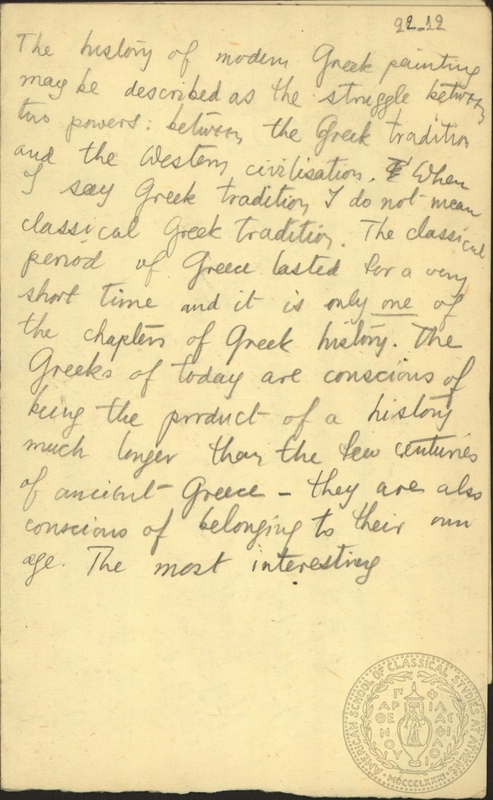 22-12
The history of modern Greek painting
may be described as the struggle between
two powers: between the Greek tradition
and the Western civilisation. When
I say Greek tradition I do not mean
classical Greek tradition. The classical
period of Greece lasted for a very
short time and it is only one of
the chapters of Greek history. The
Greeks of today are conscious of
being the product of a history
much longer than the few centuries
of ancient Greece – they are also
conscious of belonging to their own
age. The most interesting
AMERICAN SCHOOL OF CLASSICAL STUDIES AT ATHENS
ΠΑΡΘΕΝΟΥ ΦΙΛΑΣ ΦΙΛΙΟ
MDCCCLXXXI